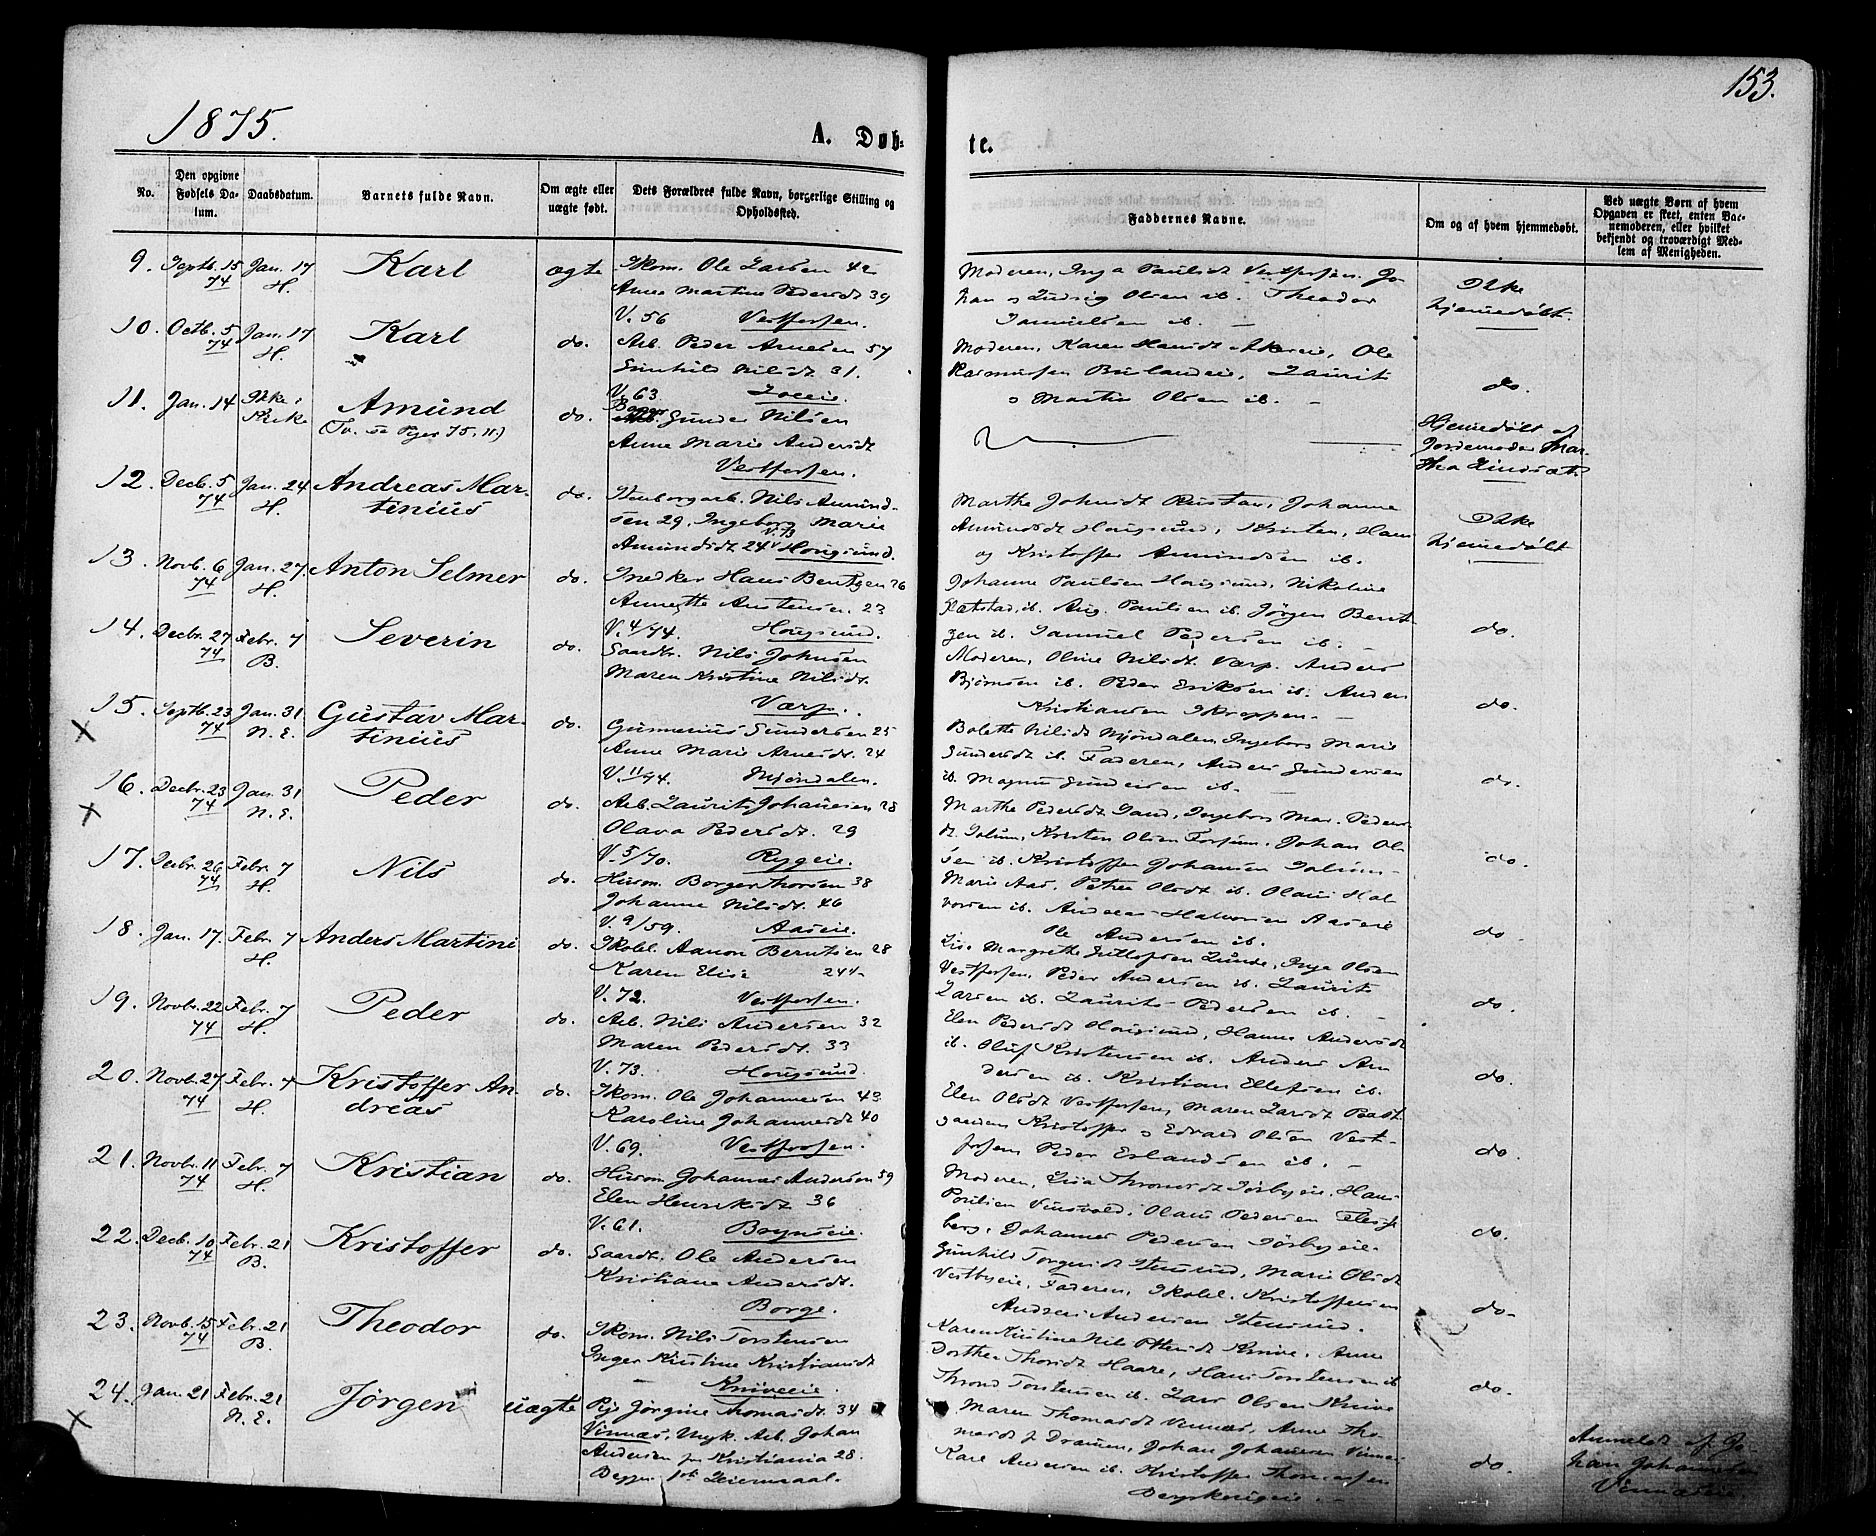 153.
1875.
A. Døb-
te.
No.
Den opgivne Fødsels Da-tum.
Daabsdatum.
Barnets fulde Navn.
Om ægte eller uægte født.
Dets Forældres fulde Navn, borgerlige Stilling og Opholdssted.
Faddernes Navne.
Om og af hvem hjemmedøbt.
Ved uægte Børn af hvem Opgaven er skeet, enten Bar-nemoderen, eller hvilket bekjendt og troværdigt Med-lem af Menigheden.
9. Septb. 15 74 Jan. 17 H. Karl ægte
Skom. Ole Larsen 42
Anne Martine Pedersdt 39
V. 56 Vestfossen.
Moderen, Inga Paulsdt Vestfossen. Jo-
han o Ludvig Olsen ib. Theodor
Samuelsen ib.
Ikke
hjemmedøbt.
10. Octb. 5 74 Jan. 17 H. Karl do.
Arb. Peder Arnesen 57
Gunhild Nilsdt 31.
V. 63
Moderen, Karen Hansdt Ole
Rasmussen Laurits
o Martin Olsen ib.
do.
11. Jan. 14 Ikke i Kirke Amund
(Tv. se 75, 11.)
do.
Gunder Nilsen
Anne Marie Andersdt
Vestfossen.
Hjemmedøbt af
Jordemoder Mar-
tha
12. Decb. 5 74 Jan. 24 H. Andreas Mar-
tinius
do.
Nils Amund-
sen 29, Ingeborg Marie
V. 73
Amundsdt 24 Hougsund.
Marthe Johnsdt Johanne
Amundsdt Hougsund, Kristen, Hans
og Kristoffer Amundsen ib.
Ikke
hjemmedøbt
13. Novb. 6 74 Jan. 27. H. Anton Selmer do.
Snedker Hans Bentzen 26
Annette Austensen. 23
V. 4/74. Hougsund.
Johanne Paulsen Hougsund, Nikoline
ib. Aug. Paulsen ib. Jørgen Bent-
zen ib. Samuel Pedersen ib.
do.
14. Decbr. 27 74 Febr. 7 B. Severin do.
Gaardbr. Nils Johnsen
Maren Kristine Nilsdt.
Varp.
Moderen, Oline Nilsdt Varp. Anders
Bjørnsen ib. Peder Eriksen ib. Anders
Kristiansen
do.
15. Septb. 23 74 Jan. 31 N. E. Gustav Mar-
tinius
do.
Gunnerius Gundersen 25
Anne Marie Arnesdt. 24
V. 11/74. Mjøndalen.
Bolette Nilsdt Mjøndalen, Ingeborg Marie
Gundersdt ib. Faderen, Anders Gundersen
ib. Magnus Gundersen ib.
do.
16. Decbr. 23 74 Jan. 31 N. E. Peder do.
Arb. Laurits Johansen 28
Olava Pedersdt. 29
V. 5/70. Rygeie.
Marthe Pedersdt Sand, Ingeborg Mar. Peders-
dt Solum, Kristen Olsen Johan Ol-
sen ib. Kristoffer Johansen Solum
do.
17. Decbr. 26 74 Febr. 7 H. Nils do.
Husm. Borger Thorsen 38
Johanne Nilsdt. 46
V. 9/59. Aaseie.
Maria Aas, Petrea Olsdt ib. Olaus Hal-
vorsen ib. Andreas Halvorsen Aaseie
Ole Andersen ib.
do.
18. Jan. 17. Febr. 7 H. Anders Martini do.
Skolel. Aanon Berntsen 28
Karen Elise 24
V. 72. Vestfossen.
Lise Margrethe Lunde, Inga Olsen
Vestfossen, Peder Andersen ib. Laurits
Larsen ib. Laurits Pedersen ib.
do.
19. Novbr. 22 74 Febr. 7 H. Peder do.
Arb. Nils Andersen 32
Maren Pedersdt. 33
V. 73. Hougsund.
Elen Pedersdt Hougsund, Hanne Andersdt
ib. Oluf Kristensen ib. Anders An-
dersen ib. Kristian Ellefsen ib.
do.
20. Novb. 27 74 Febr. 7 H. Kristoffer An-
dreas
do.
Skom. Ole Johannesen 43
Karoline Johannesdt 40
V. 69. Vestfossen.
Elen Olsdt Vestfossen, Maren Larsdt
Kristoffer o Edvard Olsen Vest-
fossen Peder Erlandsen ib.
do.
21. Novbr. 11 74 Febr. 7 H. Kristian do.
Husm Johannes Andersen 59
Elen Henriksdt 36
V. 61. Brynseie.
Moderen, Lisa Thronsdt Hans
Paulsen Olaus Pedersen
berg, Johannes Pedersen
do.
22. Decb. 10 74 Febr. 21 B. Kristoffer do.
Gaardbr. Ole Andersen
Kristiane Andersdt.
Borge.
Gunhild Torgersdt Stensrud, Marie Olsdt
Vestbyeie, Faderen, Skolel. Kristoffersen
Andreas Andersen Stensrud.
do.
23. Novb. 15 74 Febr. 21 B. Theodor do.
Skom. Nils Torstensen
Inger Kristine Kristiansdt
Kniveeie.
Karen Kristine Knive, Anne
Dorthea Thorsdt Haare, Hans Torstensen ib
Thrond Torstensen ib. Lars Olsen Knive
do.
24. Jan. 21 Febr. 21 N. E. Jørgen uægte
Pige Jørgine Thomasdt. 34
Vinnæs, Ungk. Arb. Johan
Andersen fra Kristiania 28.
Begges 1ste Leiermaal.
Maren Thomasdt Vinnæs, Anne Tho-
masdt f. Drammen, Johan Johansen
Karl Andersen ib. Kristoffer Thomassen
do.
Anmeldt af Jo-
han Johannesen